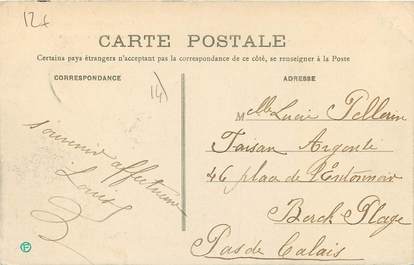 12x
CARTE POSTALE
Certains pays étrangers n'acceptant pas la correspondance de ce côté, se renseigner à la Poste
CORRESPONDANCE
ADRESSE
14)
Melle Lucie Pellerin
Faisan Argenté
46 place de l'Entonnoir
Berck Plage
Pas de Calais
souvenir affectueux
Louis